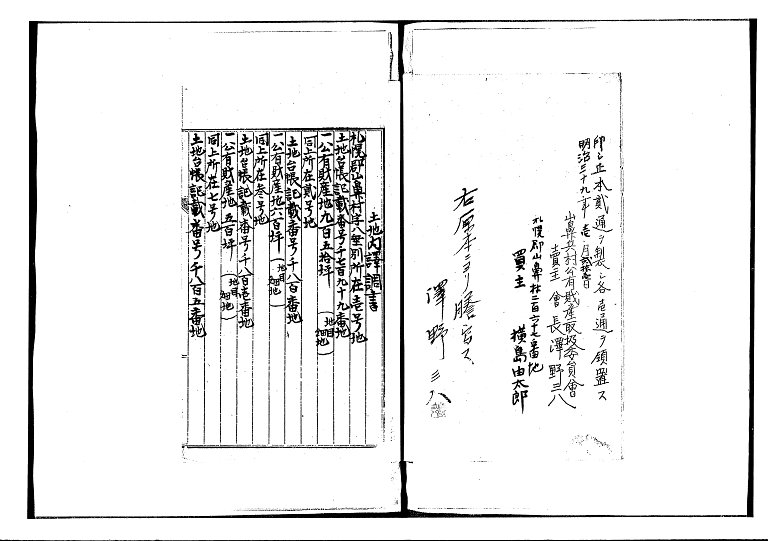 印シ正本貳通ヲ製シ各壱通ヲ領置ス
明治三十九年壱月
山鼻兵村公有財産取扱委員會
賣主 會長 澤野三八
札幌郡山鼻村二百六十七番地
買主 横島由太郎
右原本ニヨリ謄写ス
澤野三八
土地内譯調書
札幌郡山鼻村字八垂別所在壱号地
土地台帳記載番号千七百九十九番地
一公有財産地九百五拾坪(地目畑地)
同上所在貳号地
土地台帳記載番号千八百番地
一公有財産地六百坪(地目畑地)
同上所在叁号地
土地台帳記載番号千八百壱番地
一公有財産地五百坪(地目畑地)
同上所在七号地
土地台帳記載番号千八百五番地